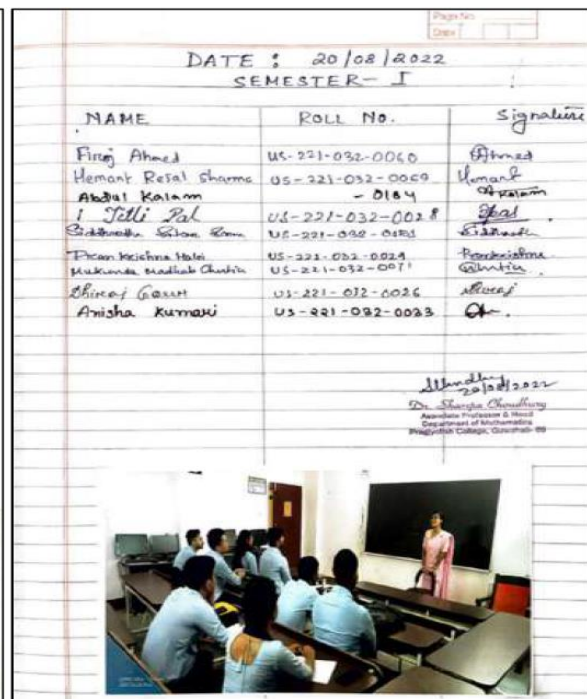 Page No.
Date
DATE : 20/08/2022
SEMESTER- I
NAME ROLL No. Signature
Firoj Ahmed US-221-032-0060 Ahmed
Hemant Resal Sharma US-221-032-0069 Hemant
Abdul Kalam - 0184 A Kalam
Titli Pal US-221-032-0028 Tpal
US-221-032- Siddharth
Pran Krishna Haloi US-221-032-0029 Prankrishna
Mukunda Madhab Chutia US-221-032-0071 Chutia
Dhiraj Gour US-221-032-0026 Dhiraj
Anisha Kumari US-221-032-0033
20/08/2022
Dr. Sharupa Choudhury
Associate Professor & Head
Department of Mathematics
Pragjyotish College, Guwahati- 09